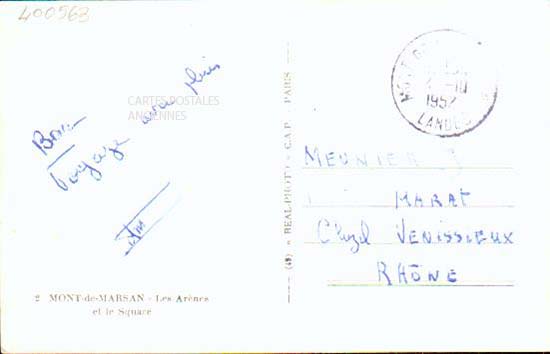 400563
CARTES POSTALES
ANCIENNES
Bon
Voyage avec
2 MONT-de-MARSAN - Les Arènes
et le Square
(49) « REAL-PHOTO » C.A.P. PARIS
10
1957
LANDES
MEUNIER J
MARAT
VENISSIEUX
RHÔNE